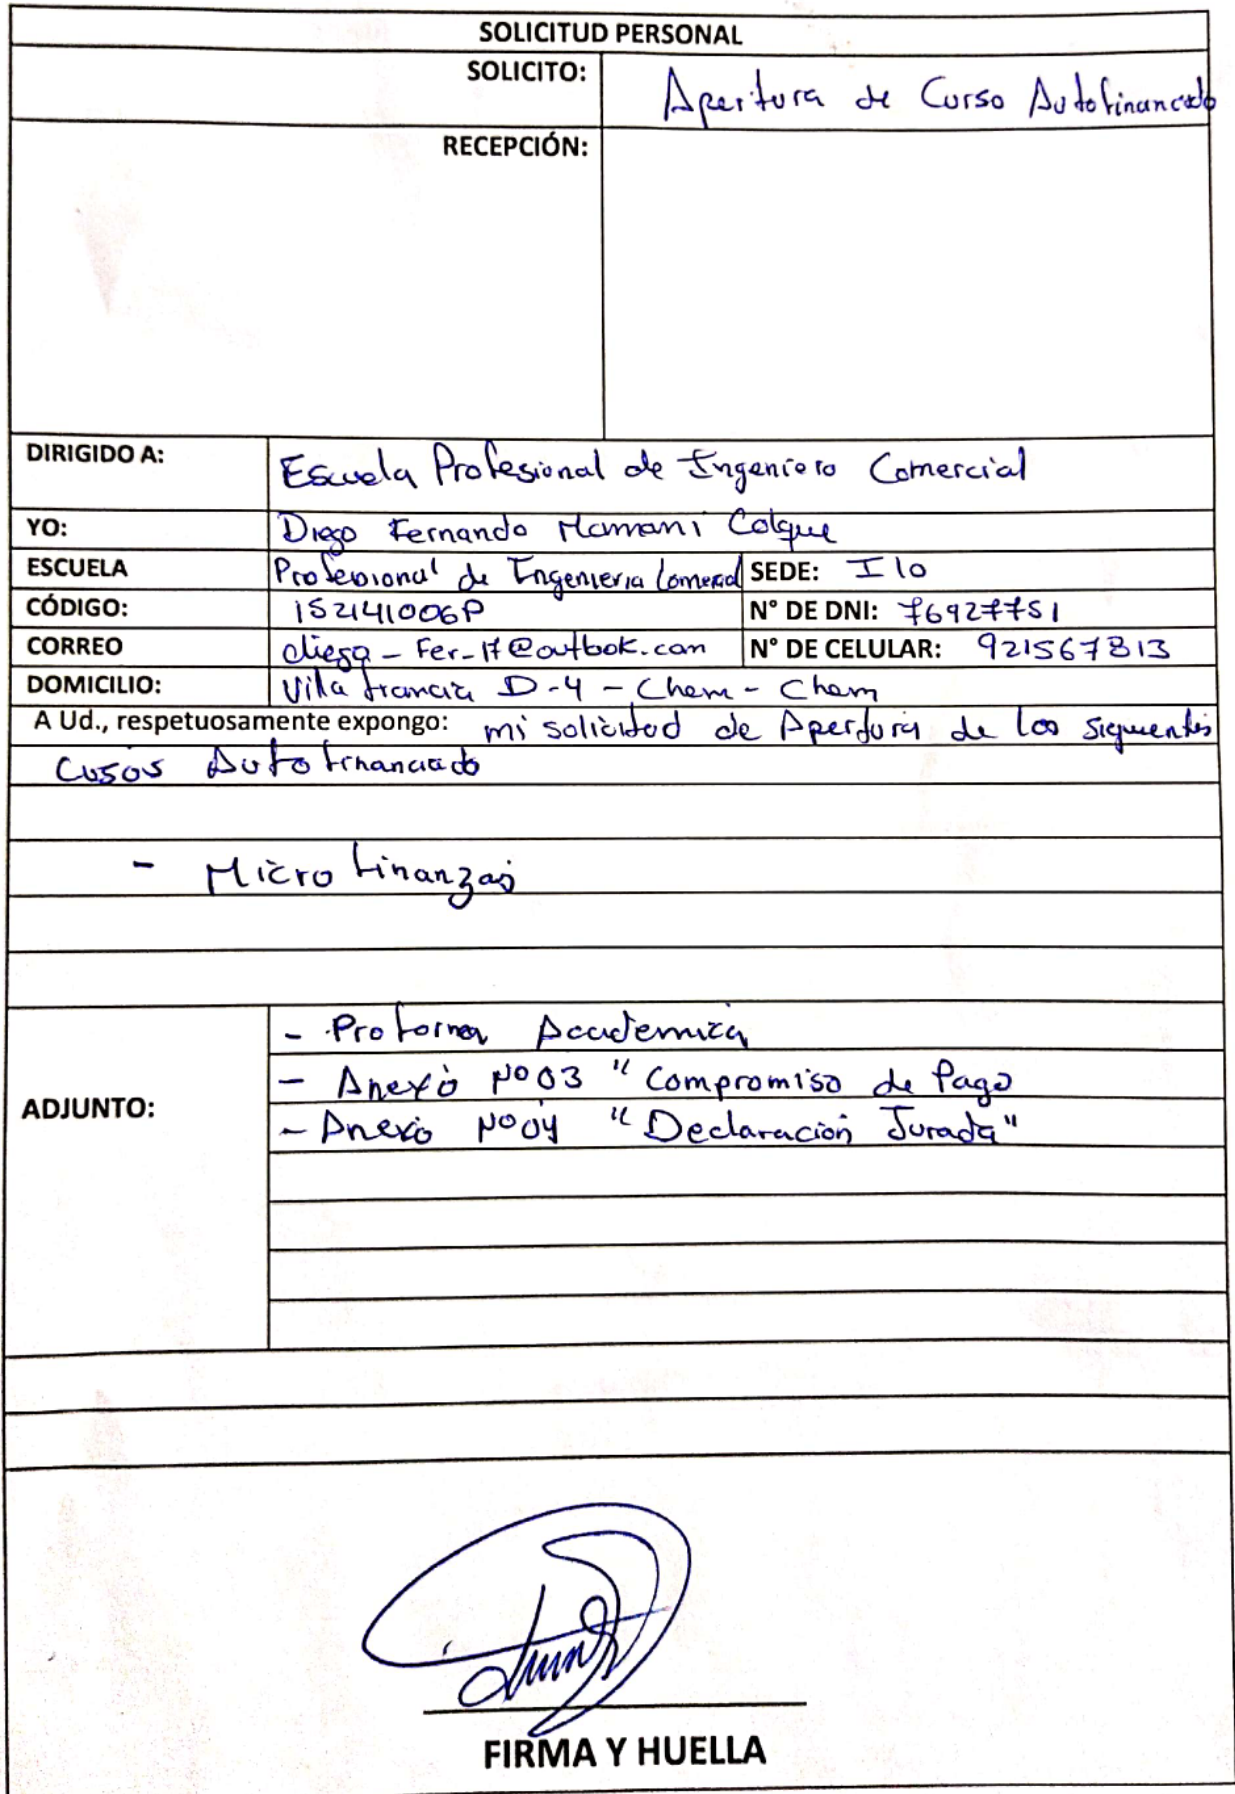 SOLICITUD PERSONAL
SOLICITO: Apertura de Curso Autofinanciado
RECEPCIÓN:
DIRIGIDO A: Escuela Profesional de Ingeniero Comercial
YO: Diego Fernando Mamani Colque
ESCUELA Profesional de Ingenieria Comercial SEDE: Ilo
CÓDIGO: 152141006P N° DE DNI: 76927751
CORREO diego-Fer-17@outlook.com N° DE CELULAR: 921567813
DOMICILIO: Villa francia D-4 - Chem - Chem
A Ud., respetuosamente expongo: mi solicitud de Apertura de los siguientes
Cusos Autofinanciado
- Micro finanzas
- Proforma Academica
- Anexo N°03 "Compromiso de Pago
ADJUNTO:
- Anexo N°04 "Declaración Jurada"
FIRMA Y HUELLA